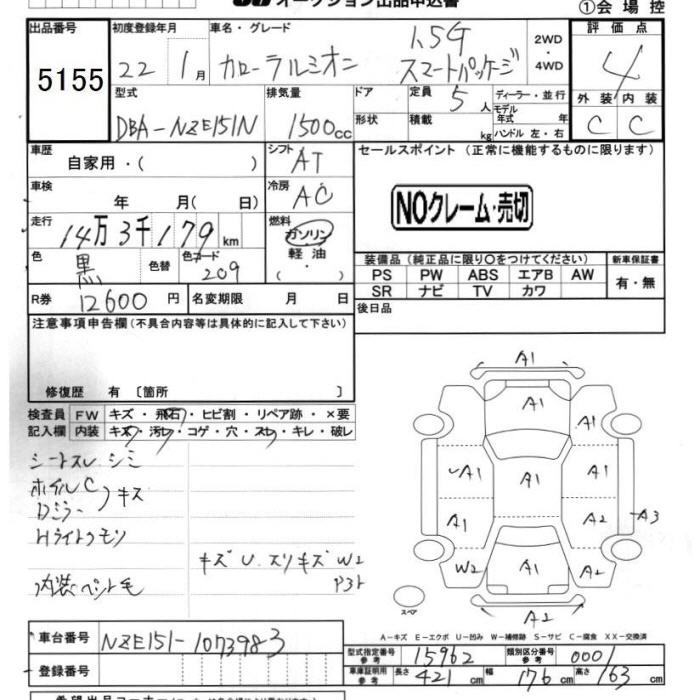 オークション出品申込書
①会場控
出品番号 初度登録年月 車名・グレード 評価点
5155
22年 1月 カローラルミオン 1.5G スマートパッケージ 2WD・4WD
4
型式 排気量 ドア 定員 5人 ディーラー・並行 外装 内装
DBA-NZE151N 1500cc 形状 積載 kg モデル年式 年 ハンドル 左・右 C C
車歴 自家用・( ) シフト AT セールスポイント (正常に機能するものに限ります)
車検 年 月 ( 日) 冷房 AC
NOクレーム・売切
走行 14万3千179km 燃料 ガソリン・軽油・( )
色 黒 色替 色コード 209
装備品 (純正品に限り○をつけてください) 新車保証書
PS PW ABS エアB AW 有・無
SR ナビ TV カワ
R券 12600円 名変期限 月 日
後日品
注意事項申告欄 (不具合内容等は具体的に記入して下さい)
修復歴 有 〔箇所 〕
検査員 FW キズ・飛石・ヒビ割・リペア跡・×要
記入欄 内装 キズ・汚レ・コゲ・穴・スレ・キレ・破レ
シートスレ シミ
ホイルC キズ
Dミラー
Hライトクモリ
キズ U スリキズ W2
P3ト
内装ペット毛
A1
A1
A1 A1 A1
A1 A2 A3
W2 A1 A2
A2
スペア
A-キズ E-エクボ U-凹み W-補修跡 S-サビ C-腐食 XX-交換済
車台番号 NZE151-1073983
型式指定番号 参考 15962 類別区分番号 参考 0001
登録番号
車庫証明用 参考 長さ 421cm 幅 176cm 高さ 163cm